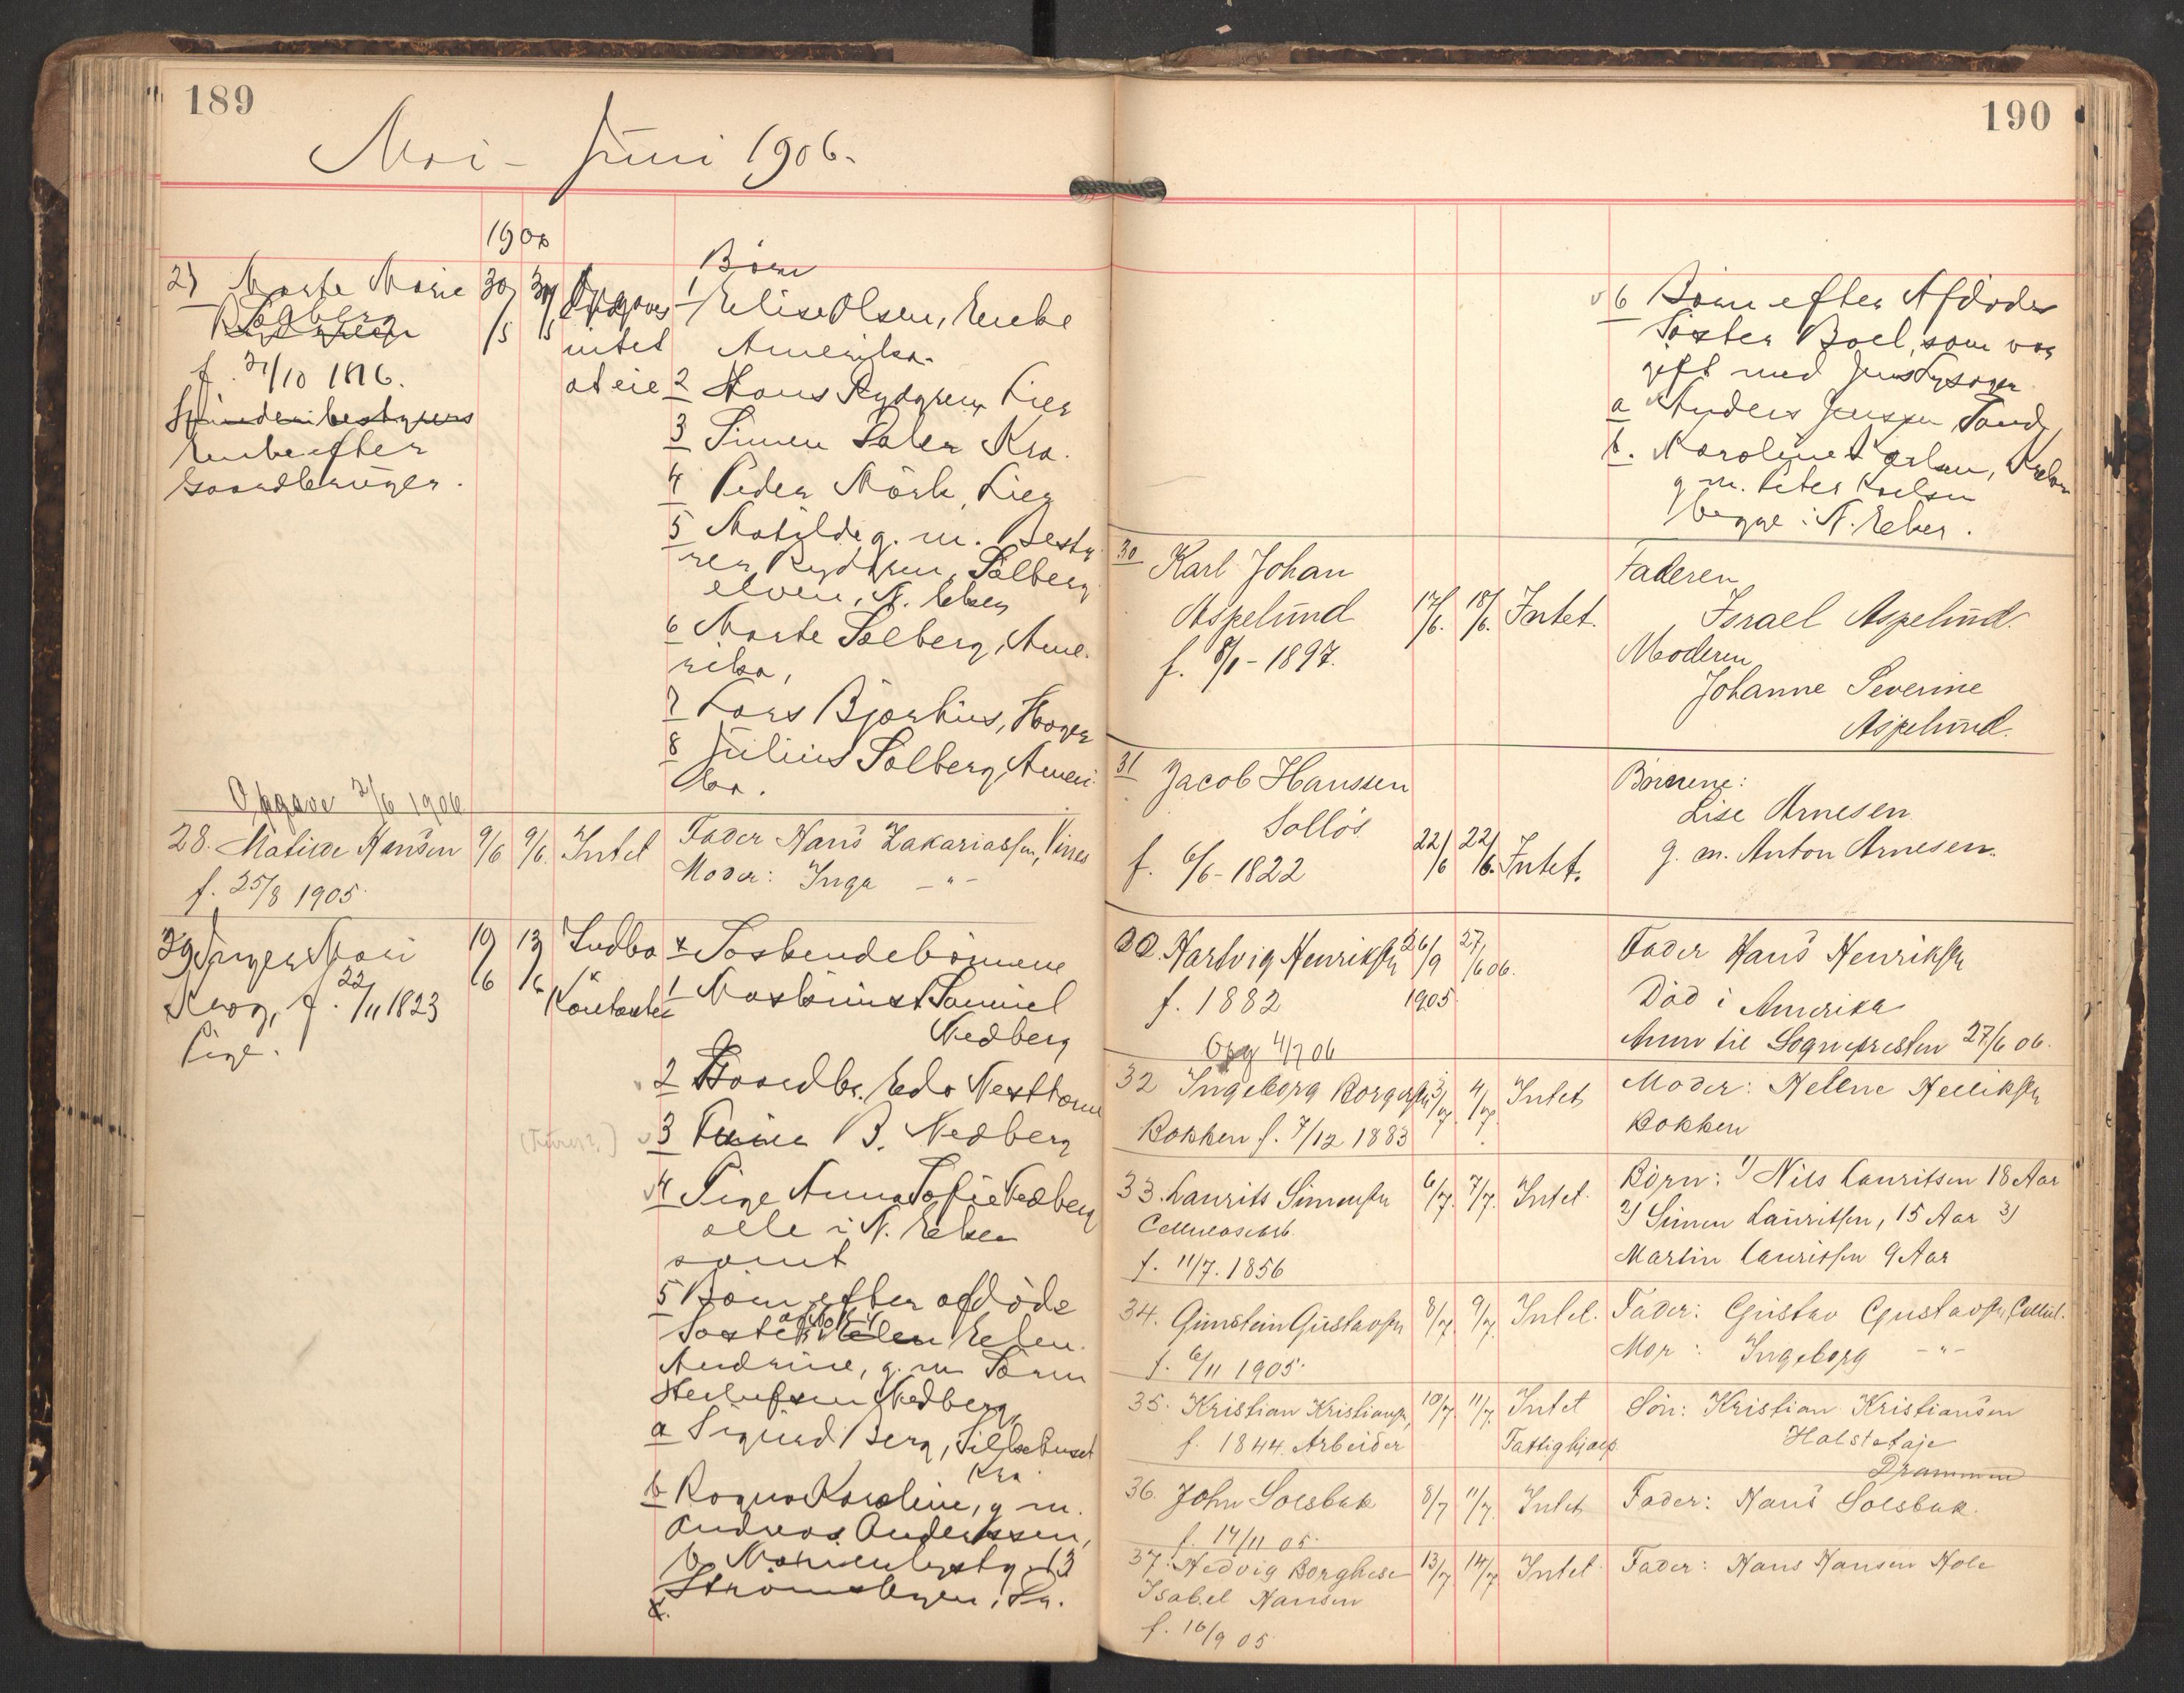 189
Mai - Juni 1906.
1906
27 Marte Marie
Solberg
f. 21/10 1816.
Enke efter
Gaardbruger.
30/5
30/5
Opgaves
intet
at eie
Børn
1 Elise Olsen, Enke
Amerika.
2 Hans Rydgren, Lier
3 Simen Saler Kra.
4 Peder Mörk, Lier
5 Matilde g. m. Besty
rer Rydgren, Solberg
elven, N. Eker
6 Marte Solberg, Ame-
rika,
7 Lars Bjørkius,
8 Julius Solberg, Ameri-
ka.
Opgave 2/6 1906
28. Matilde Hansen
f. 25/8 1905.
9/6
9/6.
Intet
Fader Hans Zakariassen, Vinnes
Moder: Inga - " -
29 Inger Mari
Krog, f. 22/11 1823
Pige.
19/6
13/6
Indbo
&
Kontanter
Søskendebørnene
1 Maskinist Samuel
Nedberg
2 Gaardbr. Edv Vesthorn
3 B. Nedberg
(Furer?)
4 Pige Anna Sofie Nedberg
alle i N. Eker
samt
5 Børn efter afdøde
Søster Elen
Andrine, g. m. Søren
Herlufsen Nedberg,
a Sigurd Berg,
Kra.
b Ragna Karoline, g m.
Andreas Anderssen,
13
Strømsbyen, Dr.
190
6 Børn efter Afdødes
Søster Boel, som var
gift med Jens
a Anders Jenssen Sand,
b. Karoline
g m. Peter
begge i N. Eker.
30 Karl Johan
Aspelund
f. 8/1 - 1897.
17/6.
18/6.
Intet.
Faderen
Israel Aspelund.
Moderen
Johanne Severine
Aspelund.
31 Jacob Hanssen
Solløs
f. 6/6 - 1822
22/6
22/6.
Intet.
Børnene:
Lise Arnesen
g. m. Anton Arnesen.
Hartvig Henriksen
f. 1882
26/9
1905
27/6 06.
Fader Hans Henriksen
Död i Amerika
Anm til Sognepresten 27/6 06.
Opg 4/7 06
32 Ingeborg Borgersen
Bokken f. 7/12 1883
3/7
4/7
Intet
Moder: Helene Helliksen
Bokken
33. Laurits Simensen
Cellulosearb.
f. 11/7. 1856
6/7.
7/7.
Intet.
Börn: 1) Nils Lauritsen 18 Aar
2) Simen Lauritsen, 15 Aar 3)
Martin Lauritsen 9 Aar
34. Gunstein Gustavsen
f. 6/11 1905.
8/7.
9/7.
Intet.
Fader: Gustav Gustavsen, Cellul.
Mor: Ingeborg - " -
35. Kristian Kristiansen,
f. 1844. Arbeider
10/7.
11/7.
Intet
Fattighjælp.
Sön: Kristian Kristiansen
Drammen
36. John Solsbak
f. 14/11 05.
8/7
11/7.
Intet
Fader: Hans Solsbak.
37. Hedvig Borghese
Isabel Hansen
f. 16/9 05
13/7
14/7
Intet.
Fader: Hans Hansen Hole